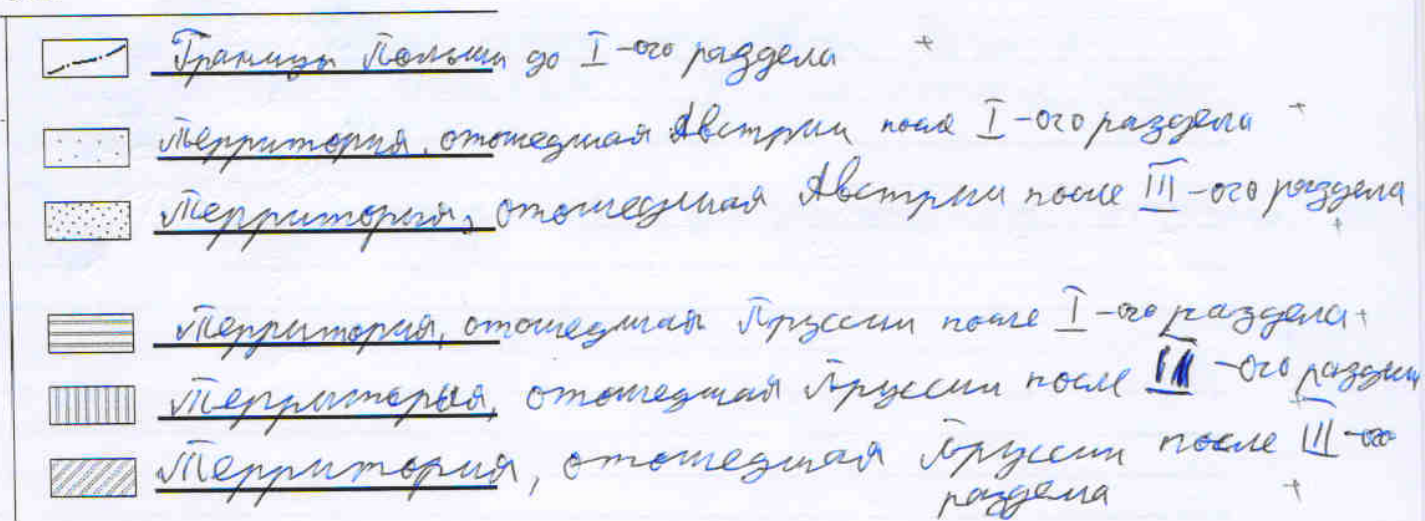 Границы Польши до I-ого раздела +
Территория, отошедшая Австрии после I-ого раздела +
Территория, отошедшая Австрии после III-ого раздела
+
Территория, отошедшая Пруссии после I-ого раздела +
Территория, отошедшая Пруссии после -ого раздела
+
Территория, отошедшая Пруссии после III-ого
раздела +